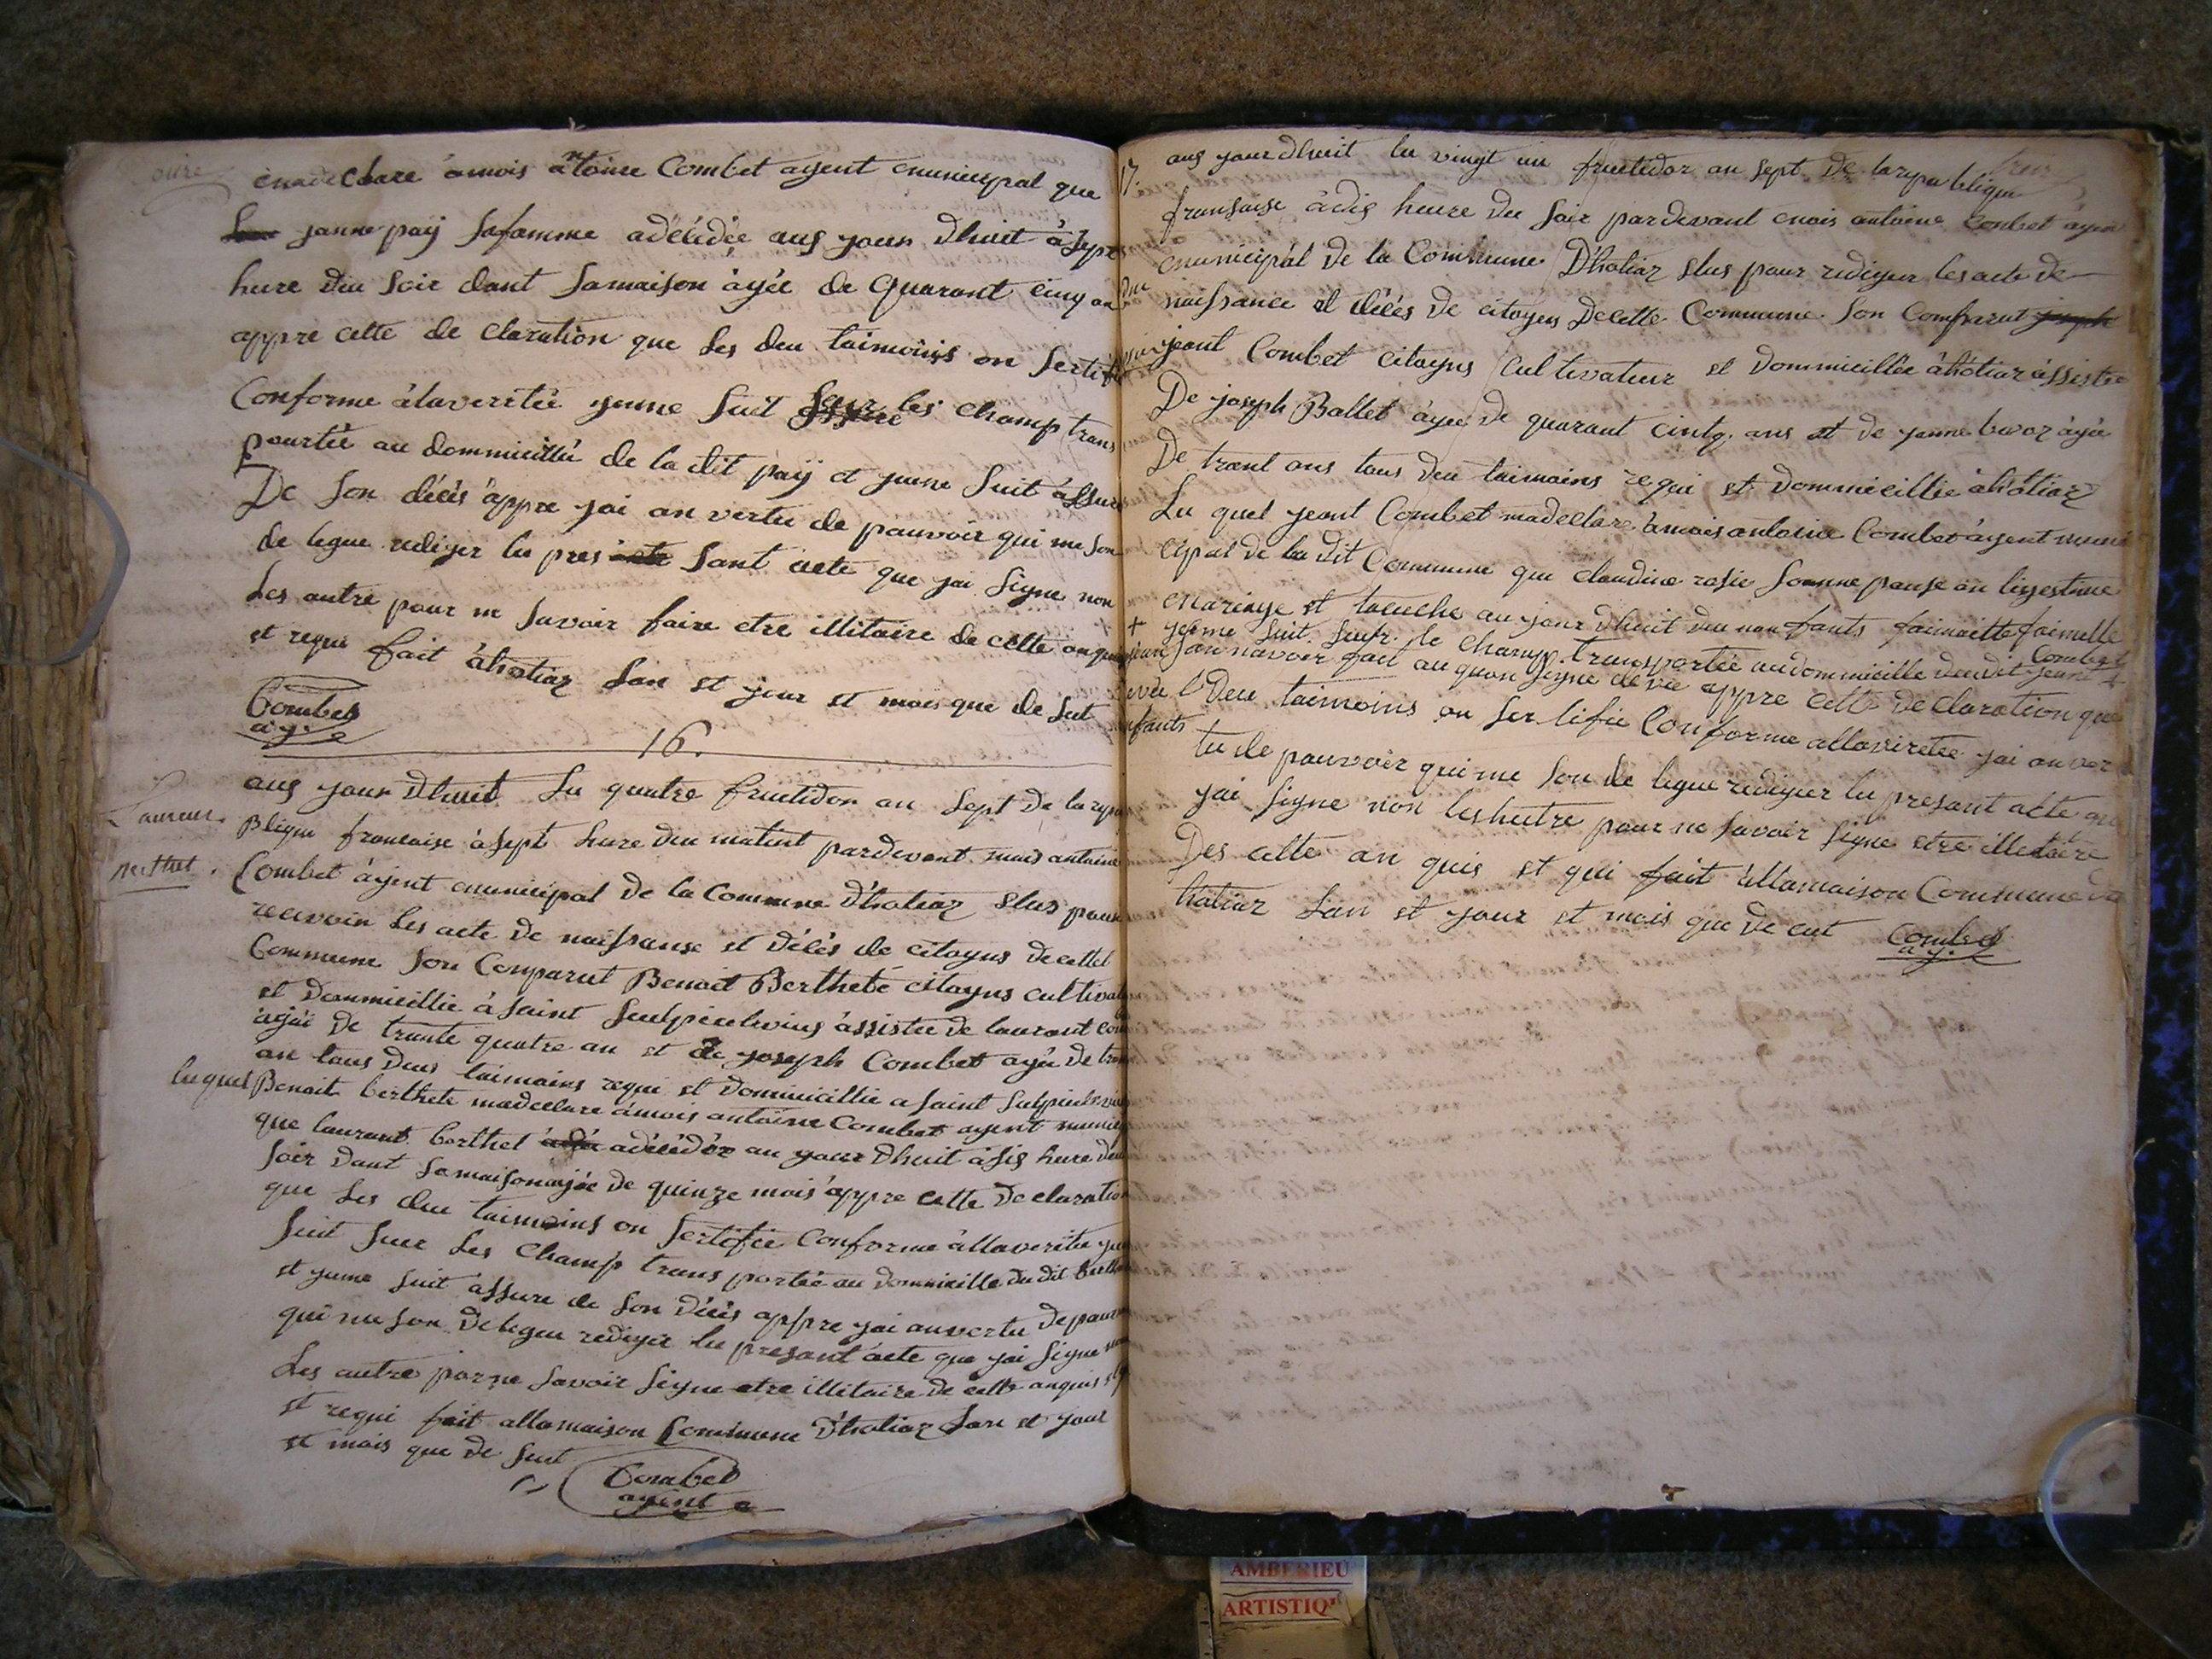 onze
ma de Clare a mois antoine Combet agent municipal que
janne päy safamme adécédée aus jour dhuit à sept
hure diu soir dant samaison âgée de quarant cinq an
appre cette de claration que les deu taimoins on sertifi
Conforme àlaverité yenne suit sur les champ trans
pourtée au dommicillé de la dit päy et yenne suit assure
De son décés appre jai an vertu de pauvoir qui me son
de legue rediger lu pres sant acte que jai signe non
Les autre pour ne savoir faire etre illitaire de cette anquis
et requi fait àhotiaz Lan et jour et mois que de sut
Combet
ag.
16.
aus jour Dhuit Lu quatre fructidor an sept de la repu
Laurans
blique francaise à sept hure deu matint pardevant mois antoine
Berthet.
Combet agent municipal de la Commune D'hotiaz Elus pour
recevoir les acte de naissanse et décés de citoyns de cettet
Commune son Comparut Benoit Bertheté citoyns cultivat
et dommicillie à saint Seulpiculevieus assistée de laurant com
agée de trante quatre an et de joseph Combet agée de tran
an tous deus taimoins requi et Dommicillie a saint Sulpiculevieu
luquel Benoit berthete madeclare àmois antoine Combet agent munici
que laurant berthet adécédér au jour Dhuit à sis hure deu
soir dant samaison ajée de quinze mois appre cette declaration
que les deu taimoins on sertifie Conforme àllaverité ye
suit sur les Champ trans portée au dommicille du dit berthet
et yenne suit assure de son décés appre jai anvertu depauvoir
qui me son delegue rediger lu presant acte que jai signe non
Les autre par ne savoir signe etre illitaire de cette anquis
et requi fait allamaison Commune D'hotiaz Lan et jour
et mois que de sut
Combet
agent
17.
aus jour dhuit lu vingt un fructidor an sept de larepublique
fransaise àdis heure deu soir pardevant mois antoine Combet agen
municipal de la Commune D'hotiaz Elus pour rediger les acte de
naissance et décés de citoyens Decette Commune son Comparut joseph
jeant Combet citoyns Cultivateur et Dommicillée àhotiaz assistée
De joseph Ballet àgée de quarant cintq. ans et de janne bavoz àgée
De trant ans tous deu taimoins requi et Dommicillie àhotiaz
Lu quel jeant Combet madeclare àmois antoine Combet agent muni
cipal de la dit Commune que claudine rosie sonne pause an ligestime
mariage et tacuche au jour dhuit deu non fants faimaille faimelle
+ yenne suit seur. le champ. transportée audommicille deudit jeant Combet +
san navoir fait au quon signe de vie appre cette declaration que
l Deu taimoins on sertifie Conforme allaviretée jai an ver
enfants
tu de pauvoir qui me son de legue rediger lu presant acte que
jai signe non les hutre pour ne savoir signe etre illetaire
Des cette an quis et qui fait àllamaison Commune da
hotiaz Lan et jour et mois que de cut
Combet
ag.
AMBERIEU
ARTISTIQ